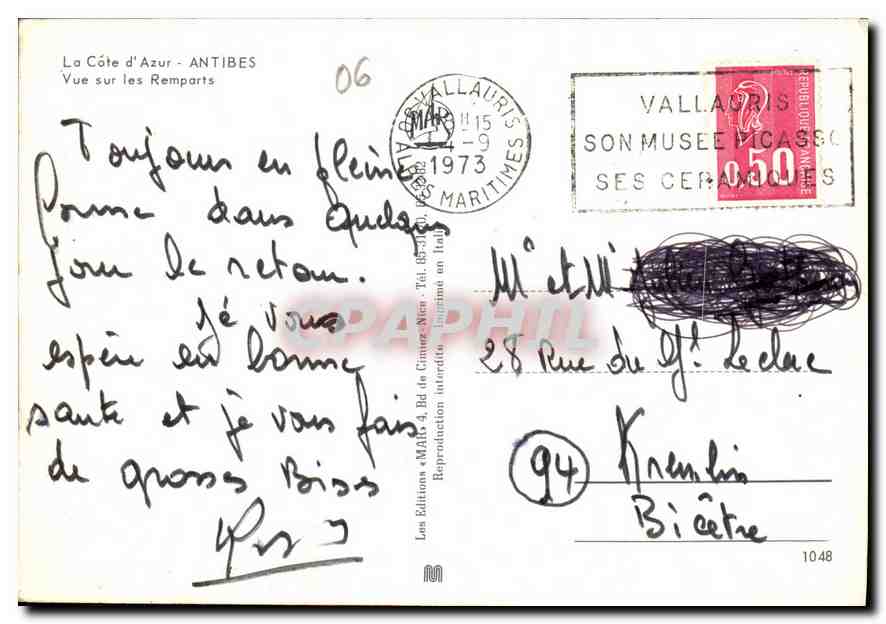 La Côte d'Azur - ANTIBES
Vue sur les Remparts
06
Toujours en pleine
forme dans quelques
jour le retour.
je vous
espère en bonne
santé et je vous fais
de grosses Bises
VALLAURIS
15
4-9
1973
ALPES MARITIMES
VALLAURIS
SON MUSEE PICASSO
SES CERAMIQUES
REPUBLIQUE FRANÇAISE
0,50
Les Editions «MAR» 4, Bd de Cimiez-Nice - Tél.
Reproduction interdite Imprimé en Italie
MAR
CPAPHIL
Mr et Me
28 Rue du Gl. Leclerc
94
Kremlin
Bicêtre
1048